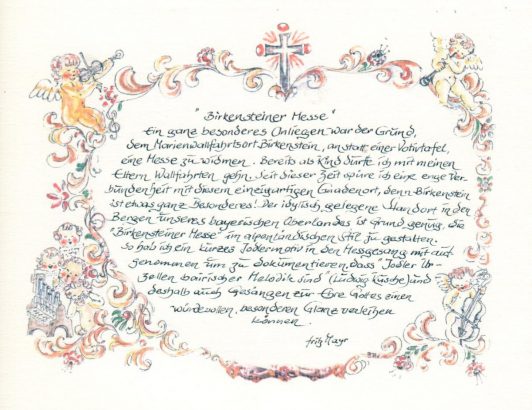 "Birkensteiner Messe"
Ein ganz besonderes Anliegen war der Grund,
dem Marienwallfahrtsort Birkenstein, anstatt einer Votivtafel,
eine Messe zu widmen. Bereits als Kind durfte ich mit meinen
Eltern Wallfahrten gehn. Seit dieser Zeit spüre ich eine enge Ver-
bundenheit mit diesem einzigartigen Gnadenort, denn Birkenstein
ist etwas ganz Besonderes! Der idyllisch gelegene Standort in den
Bergen unseres bayerischen Oberlandes ist Grund genug, die
"Birkensteiner Messe" im alpenländischen Stil zu gestalten.
So hab ich ein kurzes Jodlermotiv in den Messgesang mit auf-
genommen um zu dokumentieren, dass Jodler Ur-
zellen bairischer Melodik sind (Ludwig Kusche) und
deshalb auch Gesängen zur Ehre Gottes einen
würdevollen, besonderen Glanz verleihen
können.
Fritz Mayr